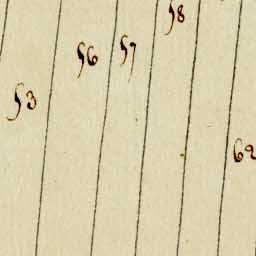 58
56 57
53
62